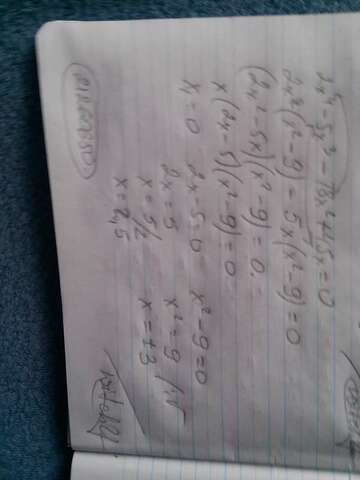 2x⁴-5x³-18x²+45x=0
2x²(x²-9)=5x(x²-9)=0
(2x²-5x)(x²-9)=0.
x(2x-5)(x²-9)=0
x₁=0 2x-5=0 x²-9=0
2x=5 x²=9 /√
x=5/2 x=±3
x=2,5